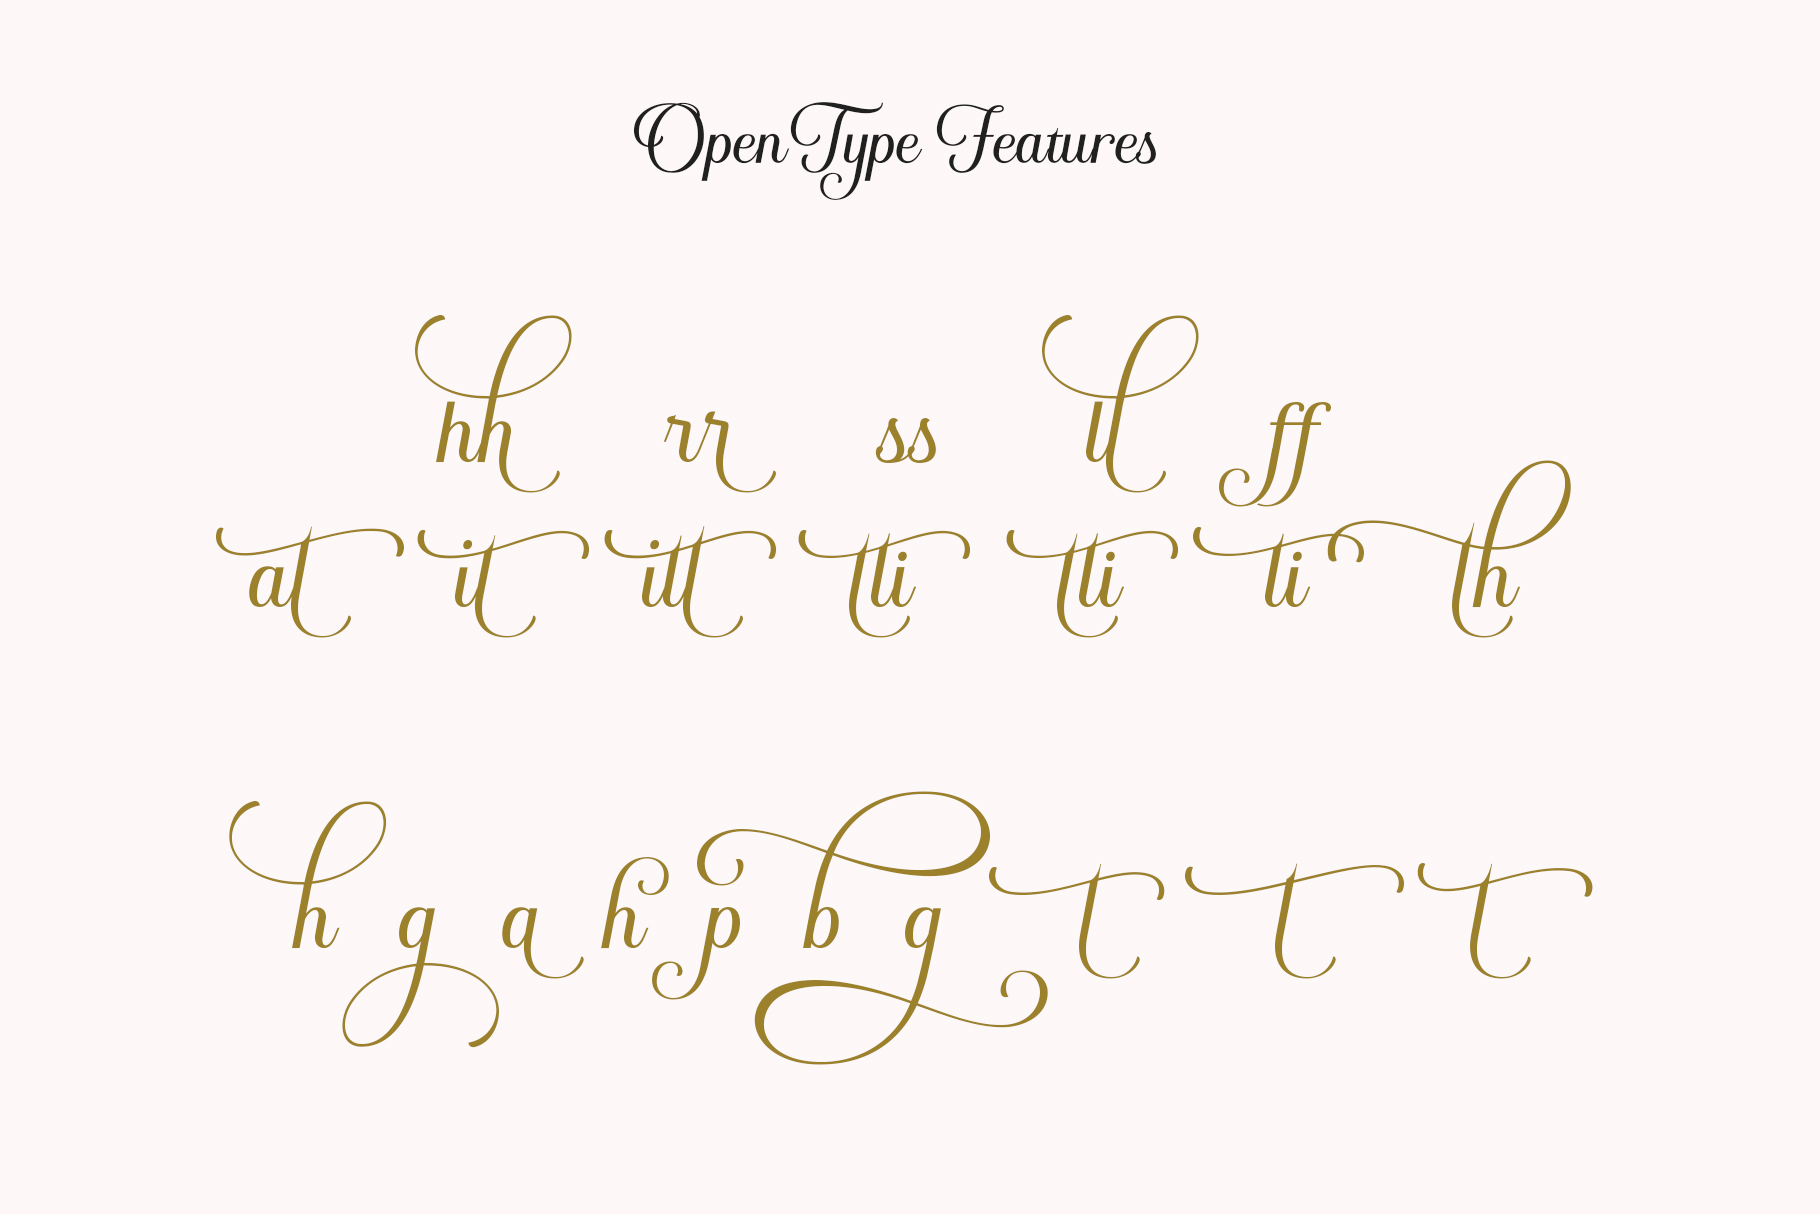 OpenType Features
hh rr ss ll ff
at it itt tti tti ti th
h g a h p b g t t t